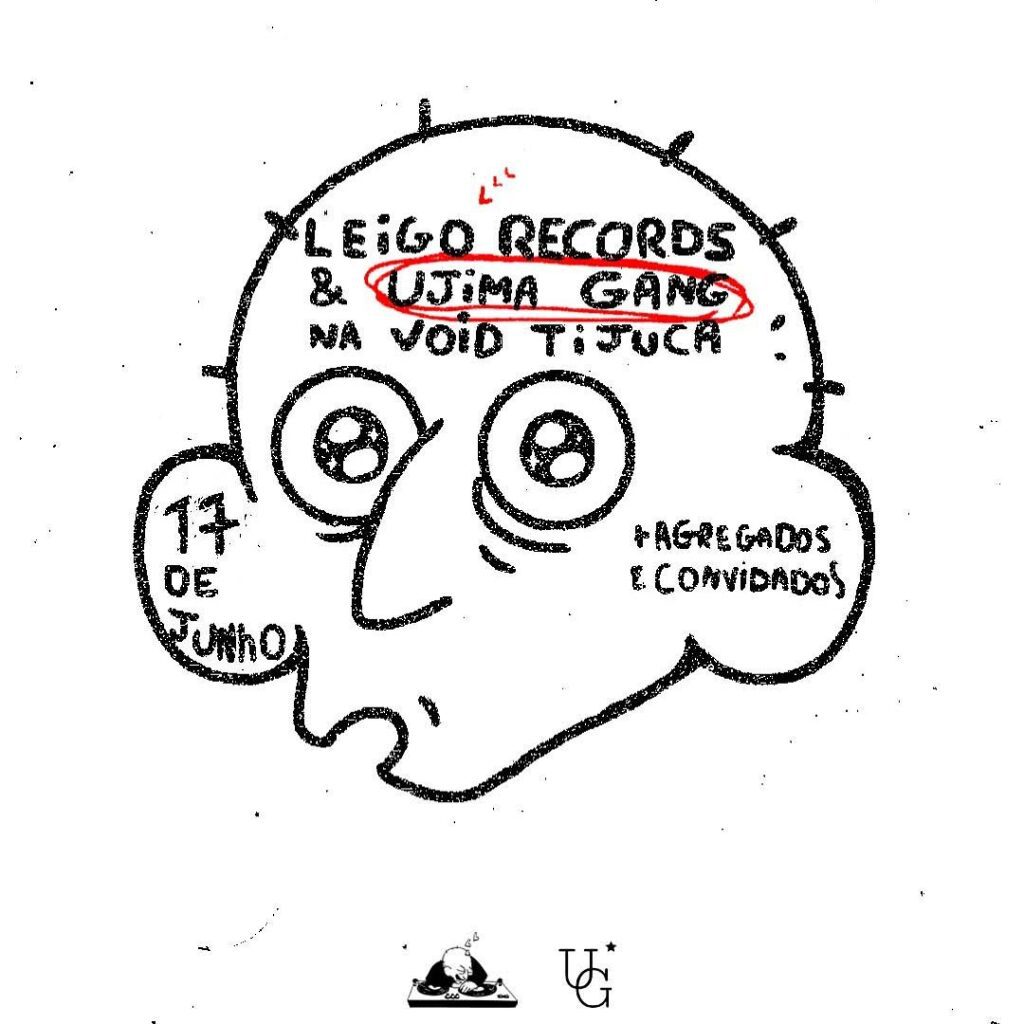 LLL
LEiGO RECORDS
& UJiMA GANG
NA VOiD TiJUCA
17
DE
JUNhO
+AGREGADOS
E CONViDADOS
UG